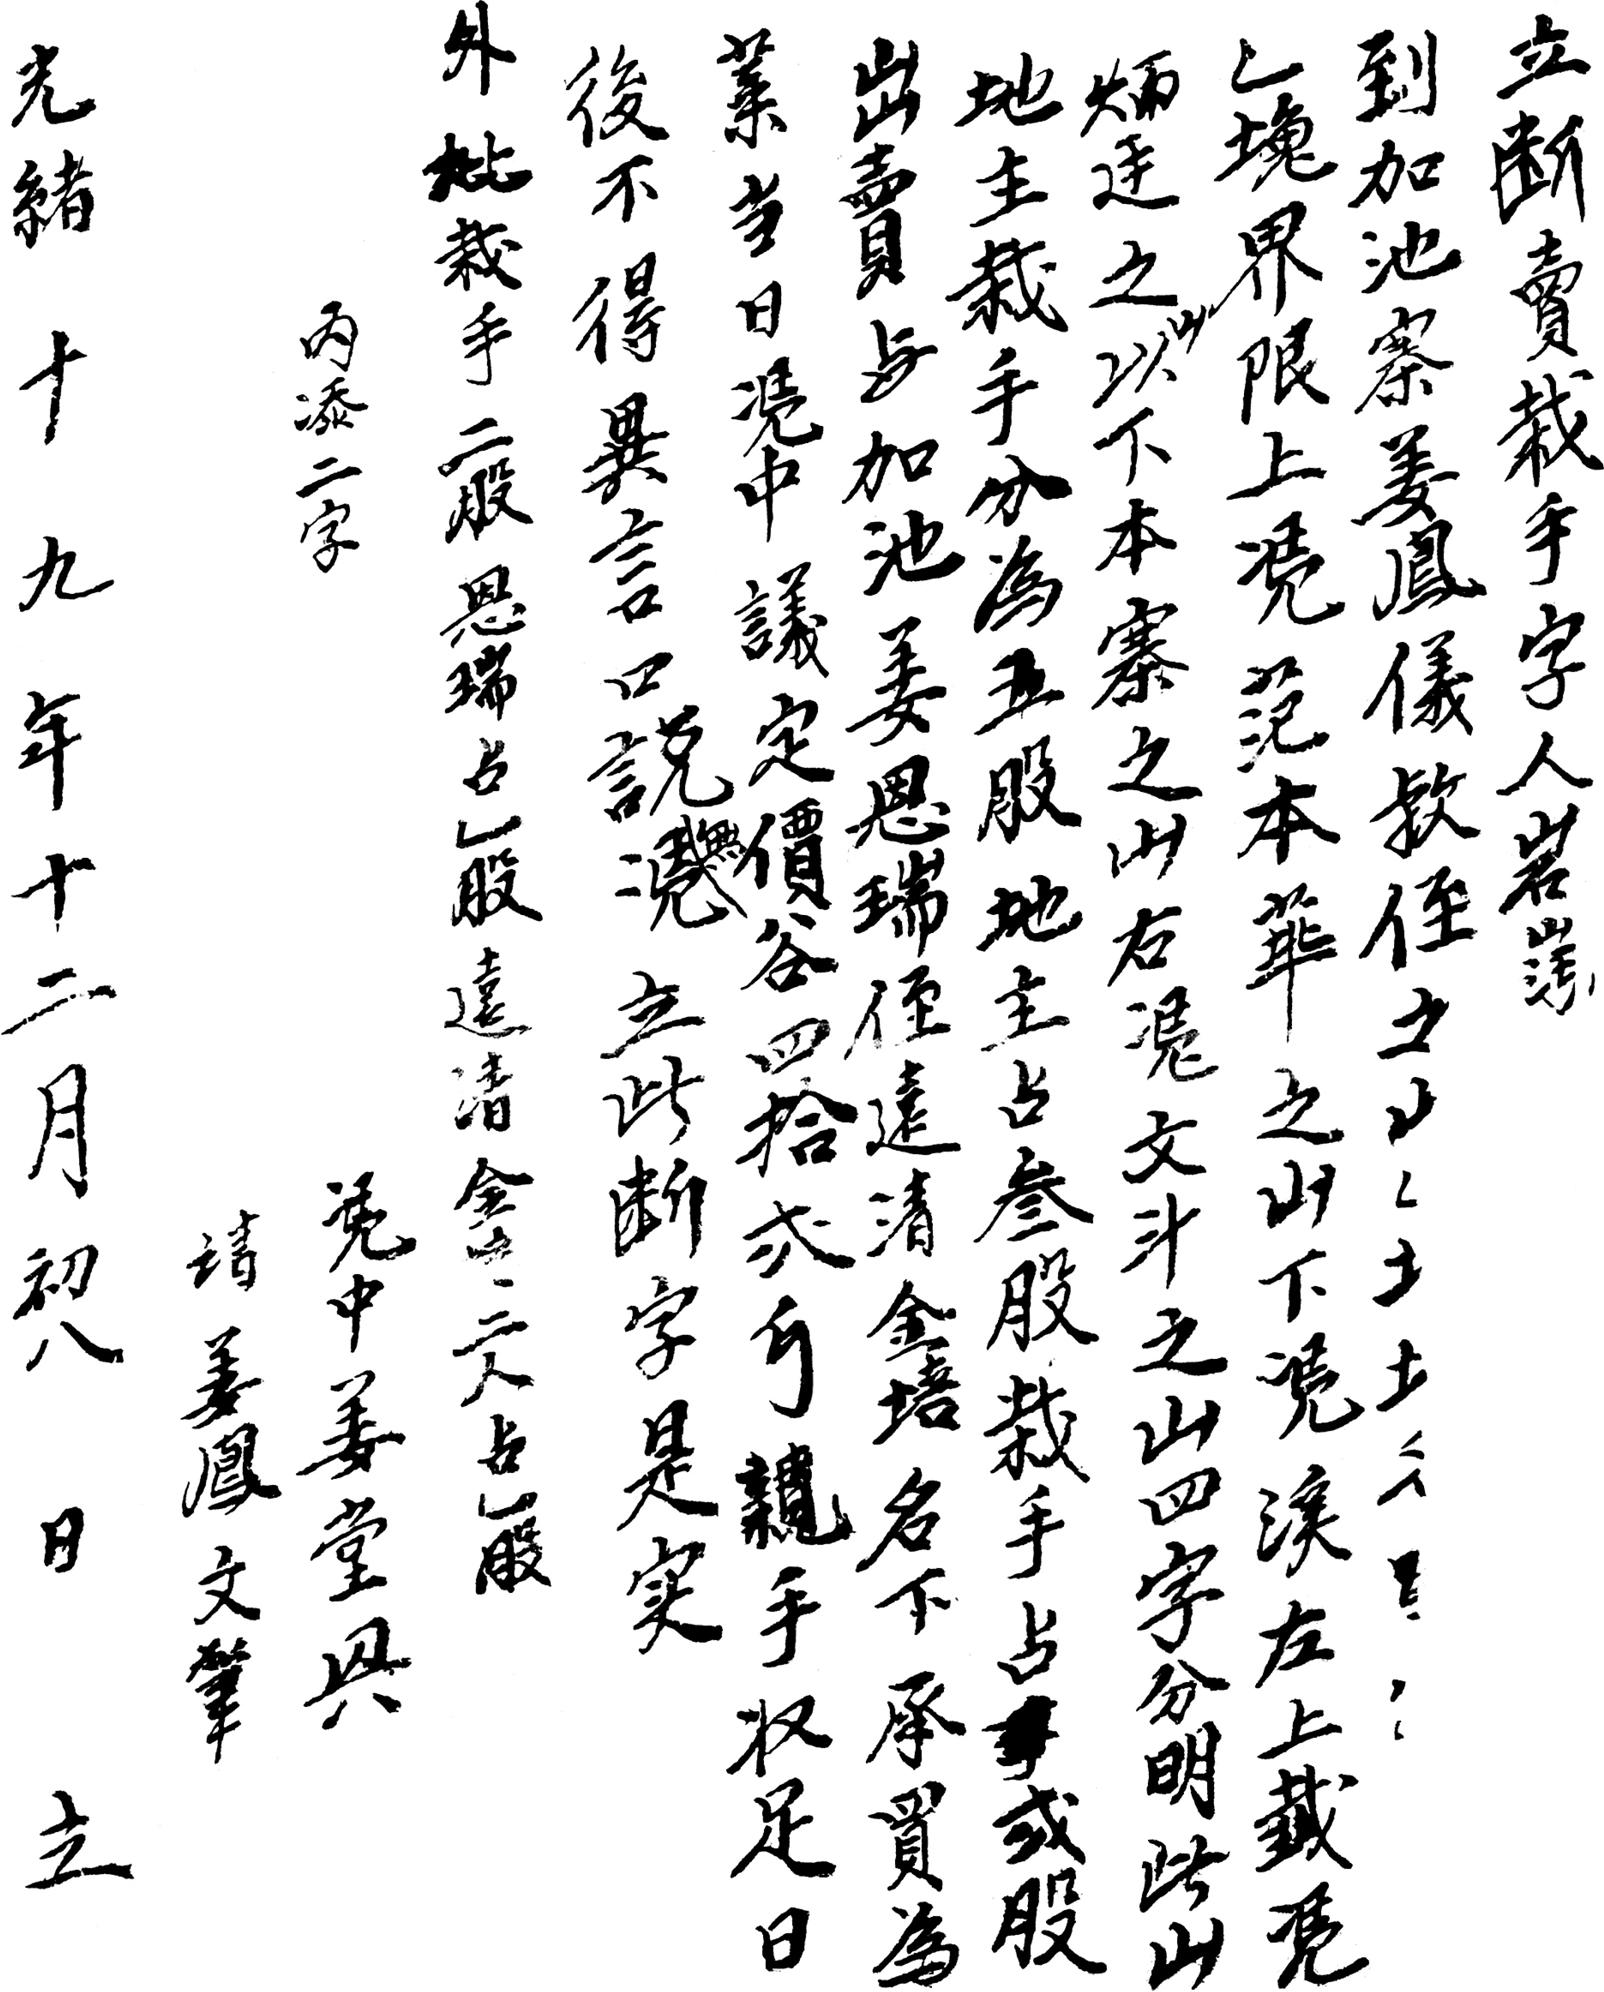 立断賣栽手字人岩湾
到加池寨姜鳳儀叔侄之山
乙塊界限上凴范本華之山下凴溪左上截凴
炳廷之山以下本寨之山右凴文斗之山四字分明此山
地主栽手分為五股地主占叁股栽手占貳股
出賣与加池姜恩瑞侄遠清金培名下承買為
業當日凴中議定價谷四拾弍斤親手收足日
後不得異言口説無凴立此断字是实
外批栽手二股恩瑞占乚股遠清金培二人占乚股
内添二字
凴中姜堂興
請姜鳳文筆
光緒十九年十二月初八日立